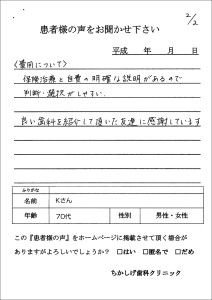 2/2
患者様の声をお聞かせ下さい
平成　年　月　日
〈費用について〉
保険治療と自費の明確な説明があるので
判断・選択がしやすい。
良い歯科を紹介して頂いた友達に感謝しています
ふりがな
名前　Kさん
年齢　70代　性別　男性・女性
この『患者様の声』をホームページに掲載させて頂く場合が
ありますがよろしいでしょうか？　□はい　□匿名で　□いいえ
ちかしげ歯科クリニック